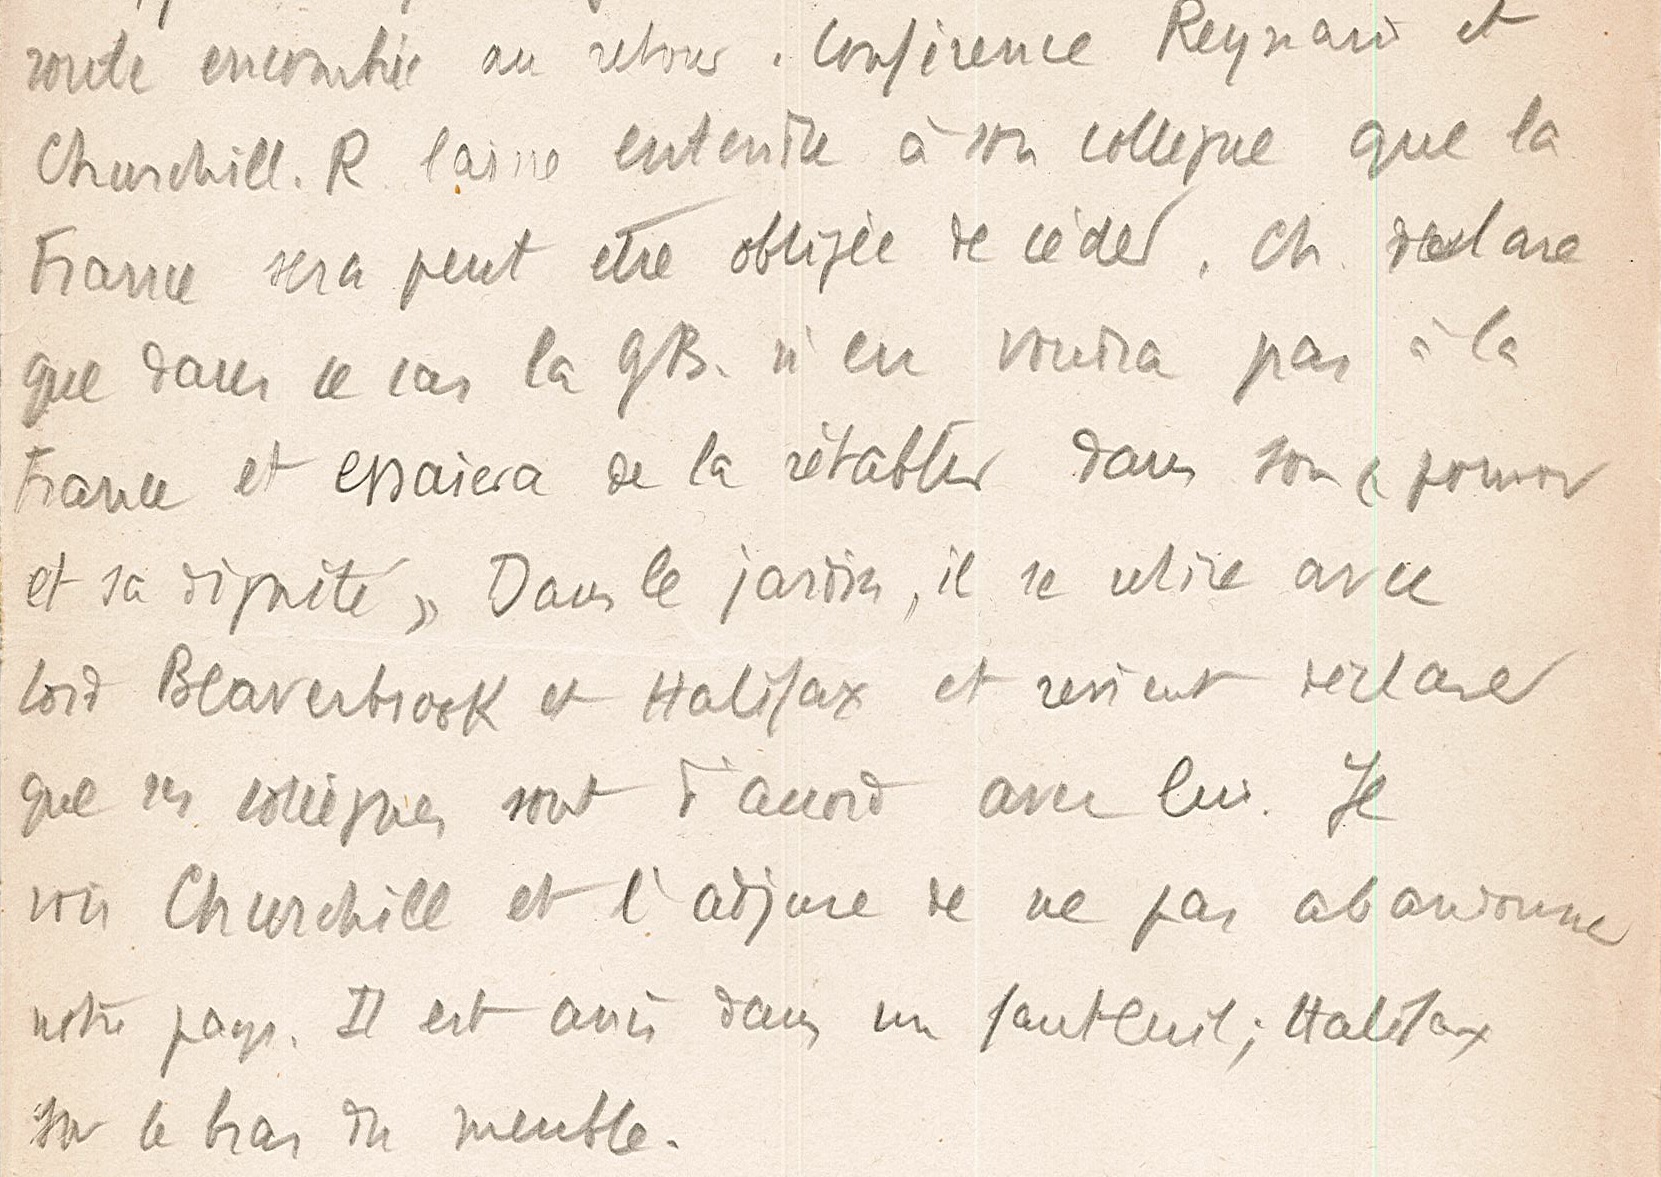 route encombrée au retour. Conférence Reynaud et
Churchill. R. laisse entendre à son collègue que la
France sera peut être obligée de céder. Ch. déclare
que dans ce cas la GB. n'en voudra pas à la
France et essaiera de la rétablir dans son « pouvoir
et sa dignité » Dans le jardin, il se retire avec
Lord Beaverbrook et Halifax et revient déclarer
que ses collègues sont d'accord avec lui. Je
vois Churchill et l'adjure de ne pas abandonner
notre pays. Il est assis dans un fauteuil ; Halifax
sur le bras du meuble.